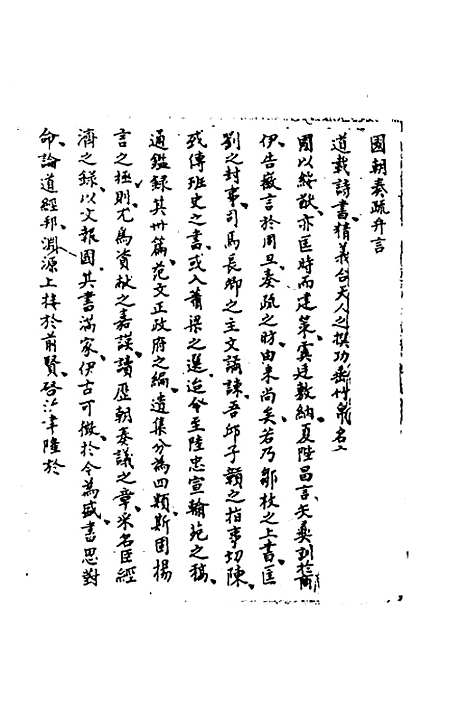 國朝奏疏弁言
道載詩書精義合天人之撰功垂竹帛名
國以綏猷亦匡時而建策虞廷敷納夏陛昌言矢奏則於商
伊告徽言於周旦奏疏之昉由來尚矣若乃鄒枚之上書匡
劉之封事司馬長卿之主文譎諫吾邱子贛之指事切陳
或傳班史之書或入蕭梁之選迨今至陸忠宣翰苑之稿
通鑑錄其卅篇范文正政府之編遺集分為四類斯固揚
言之極則尤為資猷之嘉謨讀歷朝奏議之章采名臣經
濟之錄以文報國其書滿家伊古可徵於今為盛書思對
命論道經邦淵源上接於前賢啓沃隆於